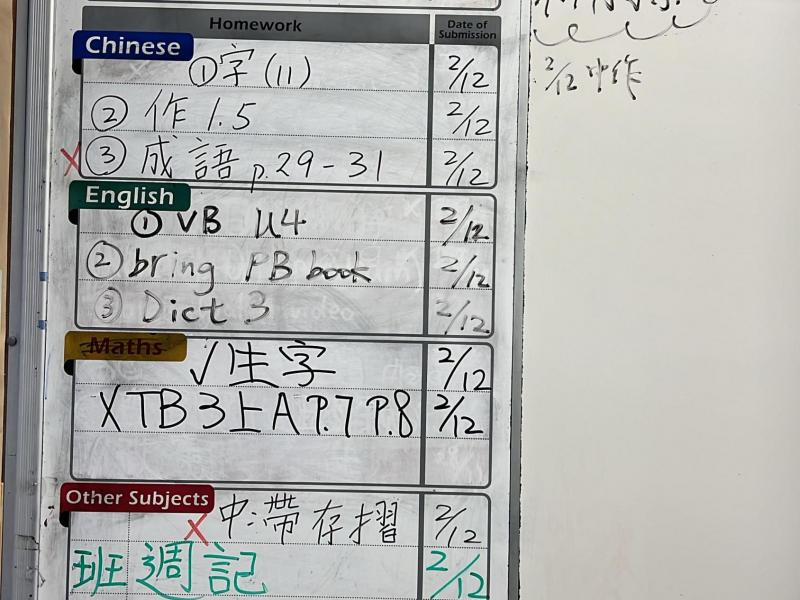 Homework Date of Submission
Chinese
①字(11) 2/12
②作1.5 2/12
X ③成語 p.29-31 2/12
English
①VB U4 2/12
②bring PB book 2/12
③Dict 3 2/12
Maths
√生字 2/12
X TB3上A P.7 P.8 2/12
Other Subjects
X 中:滯存摺 2/12
班週記 2/12
2/12 中作